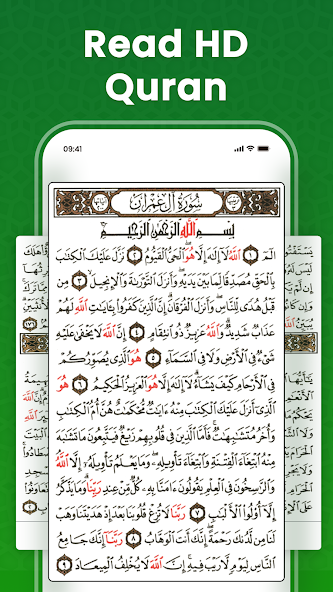 Read HD
Quran
09:41
سُورَةُ آلِ عِمْرَانَ
بِسْمِ اللَّهِ الرَّحْمَٰنِ الرَّحِيمِ
الٓمٓ ١ ٱللَّهُ لَآ إِلَٰهَ إِلَّا هُوَ ٱلْحَىُّ ٱلْقَيُّومُ ٢ نَزَّلَ عَلَيْكَ ٱلْكِتَٰبَ
بِٱلْحَقِّ مُصَدِّقًا لِّمَا بَيْنَ يَدَيْهِ وَأَنزَلَ ٱلتَّوْرَىٰةَ وَٱلْإِنجِيلَ ٣ مِن
قَبْلُ هُدًى لِّلنَّاسِ وَأَنزَلَ ٱلْفُرْقَانَ إِنَّ ٱلَّذِينَ كَفَرُوا۟ بِـَٔايَٰتِ ٱللَّهِ لَهُمْ
عَذَابٌ شَدِيدٌ وَٱللَّهُ عَزِيزٌ ذُو ٱنتِقَامٍ ٤ إِنَّ ٱللَّهَ لَا يَخْفَىٰ عَلَيْهِ
شَىْءٌ فِى ٱلْأَرْضِ وَلَا فِى ٱلسَّمَآءِ ٥ هُوَ ٱلَّذِى يُصَوِّرُكُمْ
فِى ٱلْأَرْحَامِ كَيْفَ يَشَآءُ لَآ إِلَٰهَ إِلَّا هُوَ ٱلْعَزِيزُ ٱلْحَكِيمُ ٦ هُوَ
ٱلَّذِىٓ أَنزَلَ عَلَيْكَ ٱلْكِتَٰبَ مِنْهُ ءَايَٰتٌ مُّحْكَمَٰتٌ هُنَّ أُمُّ ٱلْكِتَٰبِ
وَأُخَرُ مُتَشَٰبِهَٰتٌ فَأَمَّا ٱلَّذِينَ فِى قُلُوبِهِمْ زَيْغٌ فَيَتَّبِعُونَ مَا تَشَٰبَهَ
مِنْهُ ٱبْتِغَآءَ ٱلْفِتْنَةِ وَٱبْتِغَآءَ تَأْوِيلِهِۦ وَمَا يَعْلَمُ تَأْوِيلَهُۥٓ إِلَّا ٱللَّهُ
وَٱلرَّٰسِخُونَ فِى ٱلْعِلْمِ يَقُولُونَ ءَامَنَّا بِهِۦ كُلٌّ مِّنْ عِندِ رَبِّنَا وَمَا يَذَّكَّرُ
إِلَّآ أُو۟لُوا۟ ٱلْأَلْبَٰبِ ٧ رَبَّنَا لَا تُزِغْ قُلُوبَنَا بَعْدَ إِذْ هَدَيْتَنَا وَهَبْ
لَنَا مِن لَّدُنكَ رَحْمَةً إِنَّكَ أَنتَ ٱلْوَهَّابُ ٨ رَبَّنَآ إِنَّكَ جَامِعُ
ٱلنَّاسِ لِيَوْمٍ لَّا رَيْبَ فِيهِ إِنَّ ٱللَّهَ لَا يُخْلِفُ ٱلْمِيعَادَ ٩